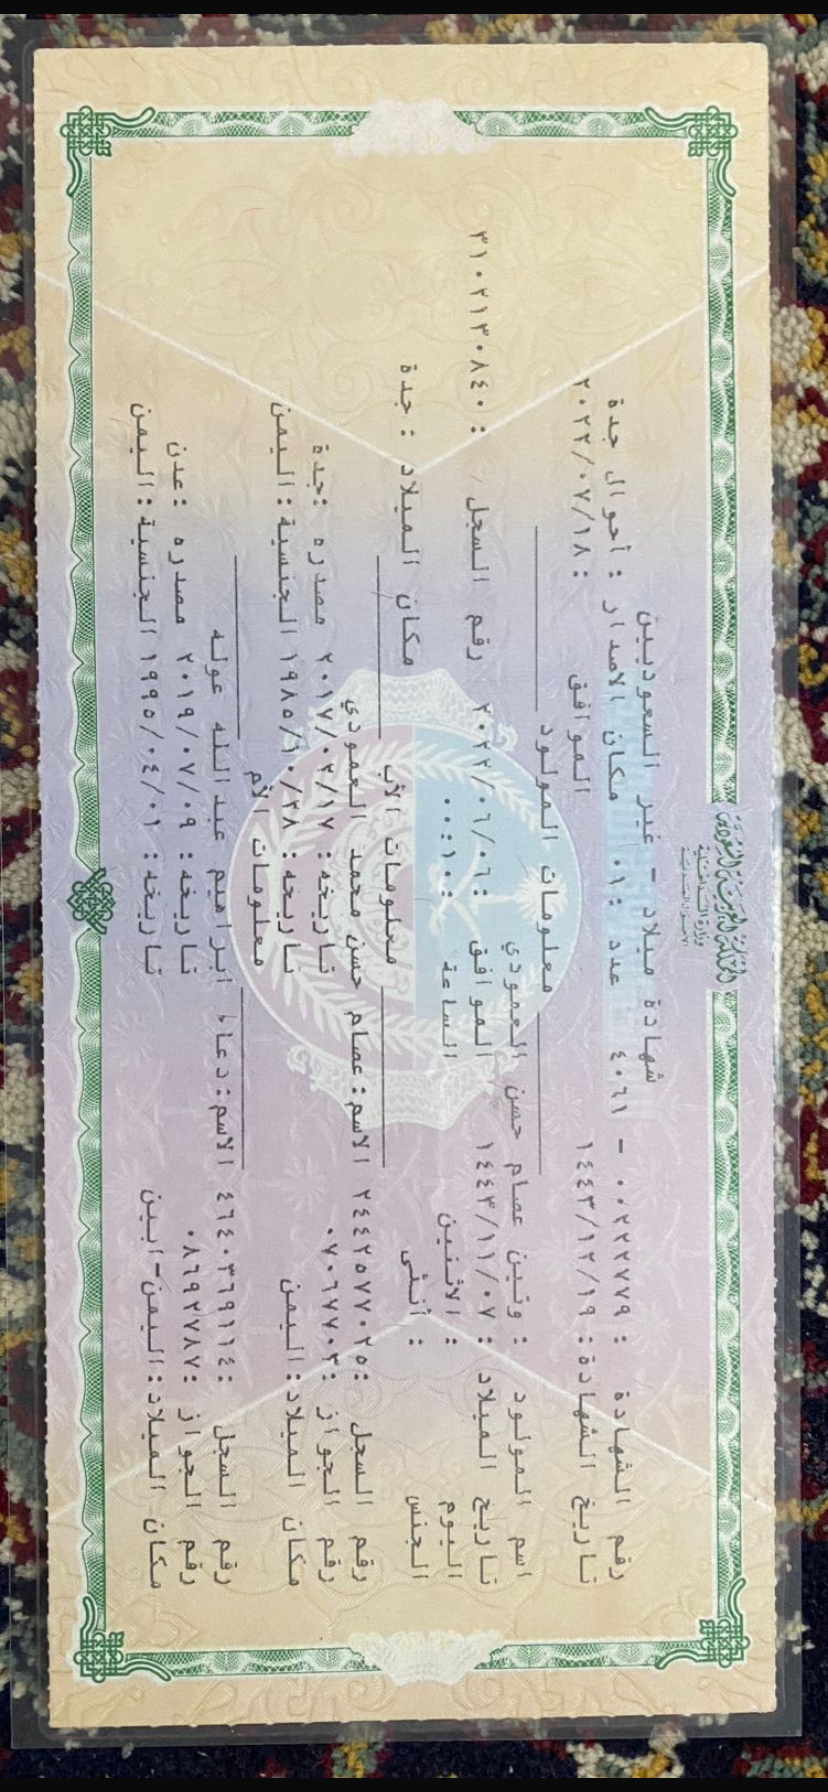 المملكة العربية السعودية
وزارة الداخلية
الأحوال المدنية
شهادة ميلاد - غير السعوديين
رقم الشهادة : ٠٠٢٢٢٧٧٩ - ٤٠٦١ عدد : ٠١ مكان الاصدار : أحوال جدة
تاريخ الشهادة : ١٤٤٣/١٢/١٩ الموافق : ٢٠٢٢/٠٧/١٨
معلومات المولود
اسم المولود : وتين عصام حسن العمودي
تاريخ الميلاد : ١٤٤٣/١١/٠٧ الموافق : ٢٠٢٢/٠٦/٠٦ رقم السجل : ٣١٠٢١٣٠٨٤٠
اليوم : الاثنين الساعة : ٠٠:١٠
الجنس : أنثى مكان الميلاد : جدة
معلومات الأب
رقم السجل : ٢٤٤٢٥٧٧٠٢٥ الاسم : عصام حسن محمد العمودي
رقم الجواز : ٠٧٠٦٧٧٠٣ تاريخه : ٢٠١٧/٠٢/١٧ مصدره : جدة
مكان الميلاد : اليمن تاريخه : ١٩٨٥/١٠/٢٨ الجنسية : اليمن
معلومات الأم
رقم السجل : ٤٦٤٠٣٦٩١١٤ الاسم : دعاء ابراهيم عبدالله عوله
رقم الجواز : ٠٨٦٩٢٧٨٧ تاريخه : ٢٠١٩/٠٧/٠٩ مصدره : عدن
مكان الميلاد : اليمن-ابين تاريخه : ١٩٩٥/٠٤/٠١ الجنسية : اليمن